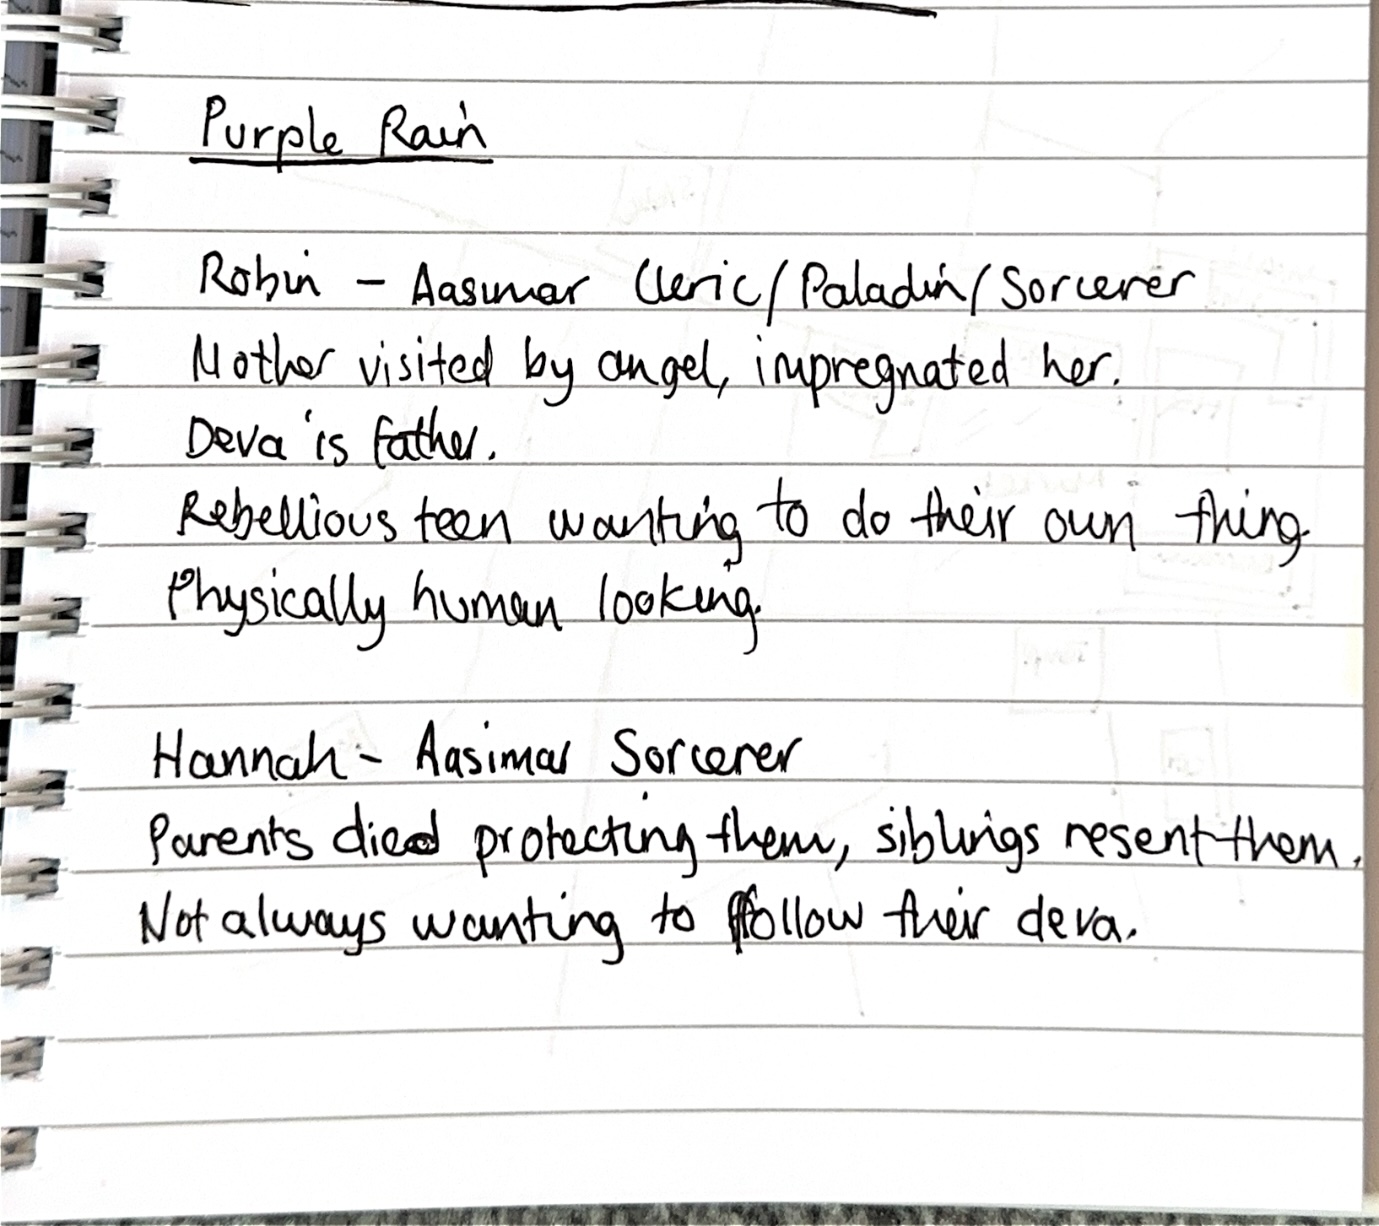 Purple Rain
Robin - Aasimar Cleric/Paladin/Sorcerer
Mother visited by angel, impregnated her.
Deva is father.
Rebellious teen wanting to do their own thing
Physically human looking.
Hannah - Aasimar Sorcerer
Parents died protecting them, siblings resent them.
Not always wanting to follow their deva.